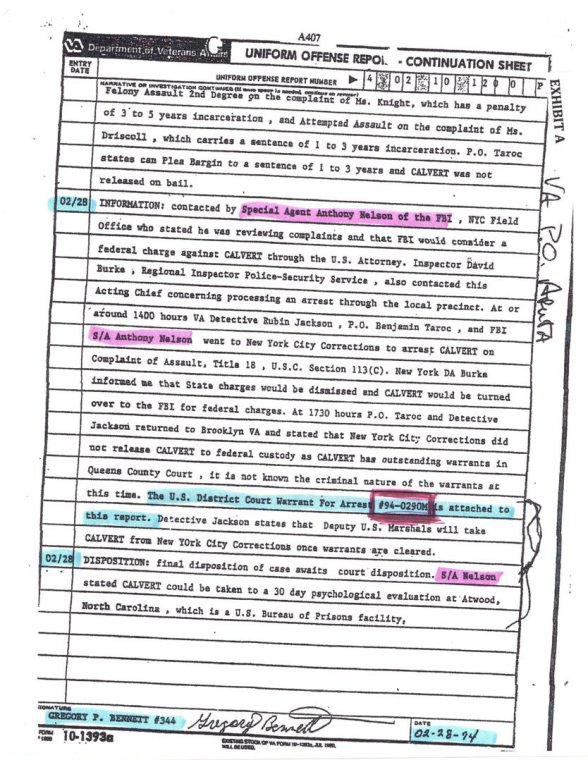 A407
VA Department of Veterans Affairs
UNIFORM OFFENSE REPOR - CONTINUATION SHEET
ENTRY DATE
UNIFORM OFFENSE REPORT NUMBER
4 0 2 1 0 1 2 0 0 P
NARRATIVE OR INVESTIGATION CONTINUED (If more space is needed, continue on reverse)
Felony Assault 2nd Degree on the complaint of Ms. Knight, which has a penalty
of 3 to 5 years incarceration , and Attempted Assault on the complaint of Ms.
Driscoll , which carries a sentence of 1 to 3 years incarceration. P.O. Taroc
states can Plea Bargin to a sentence of 1 to 3 years and CALVERT was not
released on bail.
02/28 INFORMATION: contacted by Special Agent Anthony Nelson of the FBI , NYC Field
Office who stated he was reviewing complaints and that FBI would consider a
federal charge against CALVERT through the U.S. Attorney. Inspector David
Burke , Regional Inspector Police-Security Service , also contacted this
Acting Chief concerning processing an arrest through the local precinct. At or
around 1400 hours VA Detective Rubin Jackson , P.O. Benjamin Taroc , and FBI
S/A Anthony Nelson went to New York City Corrections to arrest CALVERT on
Complaint of Assault, Title 18 , U.S.C. Section 113(C). New York DA Burke
informed me that State charges would be dismissed and CALVERT would be turned
over to the FBI for federal charges. At 1730 hours P.O. Taroc and Detective
Jackson returned to Brooklyn VA and stated that New York City Corrections did
not release CALVERT to federal custody as CALVERT has outstanding warrants in
Queens County Court , it is not known the criminal nature of the warrants at
this time. The U.S. District Court Warrant For Arrest #94-0290M is attached to
this report. Detective Jackson states that Deputy U.S. Marshals will take
CALVERT from New York City Corrections once warrants are cleared.
02/28 DISPOSITION: final disposition of case awaits court disposition. S/A Nelson
stated CALVERT could be taken to a 30 day psychological evaluation at Atwood,
North Carolina , which is a U.S. Bureau of Prisons facility.
SIGNATURE
GREGORY P. BENNETT #344
Gregory Bennett
DATE
02-28-94
FORM
10-1393a
EXISTING STOCK OF VA FORM 10-1393a, JUL 1980,
WILL BE USED.
EXHIBIT A
VA P.O.